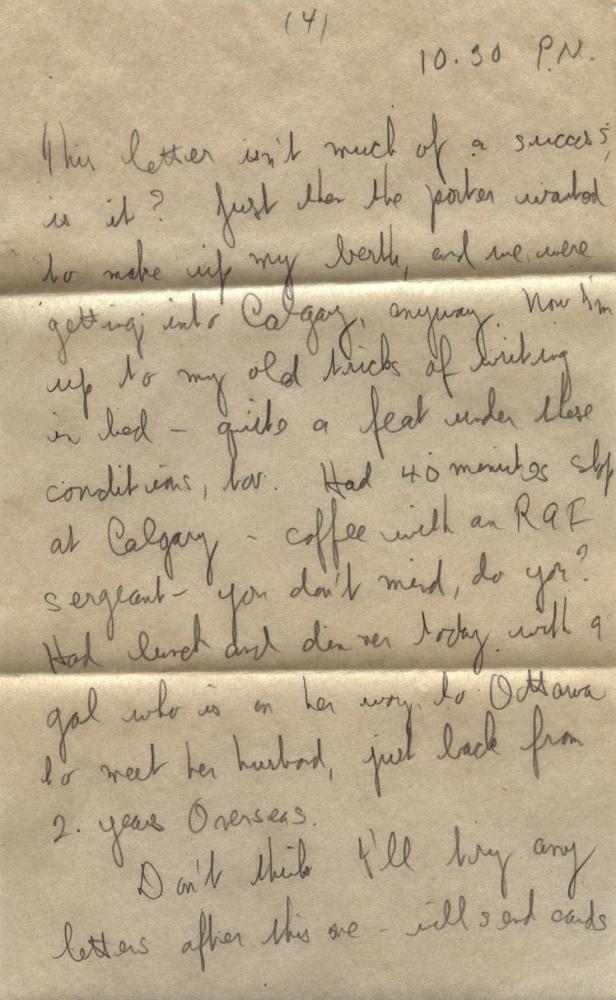 (4)
10.30 P.M.
This letter isn't much of a success,
is it? Just then the porter wanted
to make up my berth, and we were
getting into Calgary, anyway. Now I'm
up to my old tricks of writing
in bed - quite a feat under these
conditions, too. Had 40 minutes stop
at Calgary - coffee with an RAF
sergeant - you don't mind, do you?
Had lunch and dinner today with a
gal who is on her way to Ottawa
to meet her husband, just back from
2 years Overseas.
Don't think I'll try any
letters after this one - will send cards